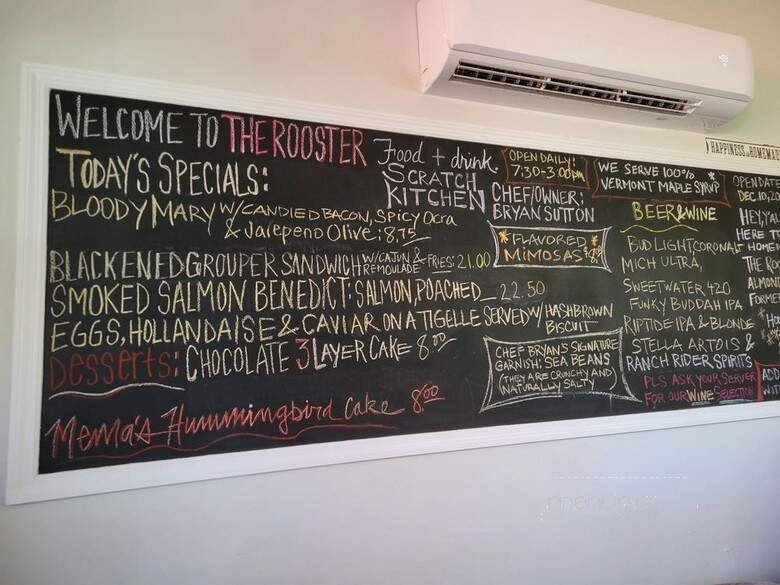 WELCOME TO THE ROOSTER
Food + drink
SCRATCH
KITCHEN
TODAY'S SPECIALS:
BLOODY MARY W/CANDIED BACON, SPICY OCRA
& Jalepeno Olive: 8.75
BLACKENED GROUPER SANDWICH W/CAJUN REMOULADE & FRIES: 21.00
SMOKED SALMON BENEDICT: SALMON, POACHED 22.50
EGGS, HOLLANDAISE & CAVIAR ON A TIGELLE SERVED W/ HASHBROWN
BISCUIT
Desserts: CHOCOLATE 3 LAYER CAKE 8.00
Mema's Hummingbird Cake 8.00
OPEN DAILY:
7:30-3:00pm
CHEF/OWNER:
BRYAN SUTTON
FLAVORED
MIMOSAS
CHEF BRYAN'S SIGNATURE
GARNISH: SEA BEANS
(THEY ARE CRUNCHY AND
NATURALLY SALTY)
WE SERVE 100%
VERMONT MAPLE SYRUP
BEER & WINE
BUD LIGHT, CORONA, LT
MICH ULTRA,
SWEETWATER 420
FUNKY BUDDAH IPA
RIPTIDE IPA & BLONDE
STELLA ARTOIS &
RANCH RIDER SPIRITS
PLS ASK YOUR SERVER
FOR OUR WINE SELECTION
HAPPINESS is HOMEMADE
OPEN DATE
DEC 10, 20
HEY, YA
HERE
HOMEM
THE ROO
ALMON
FORME
ADD